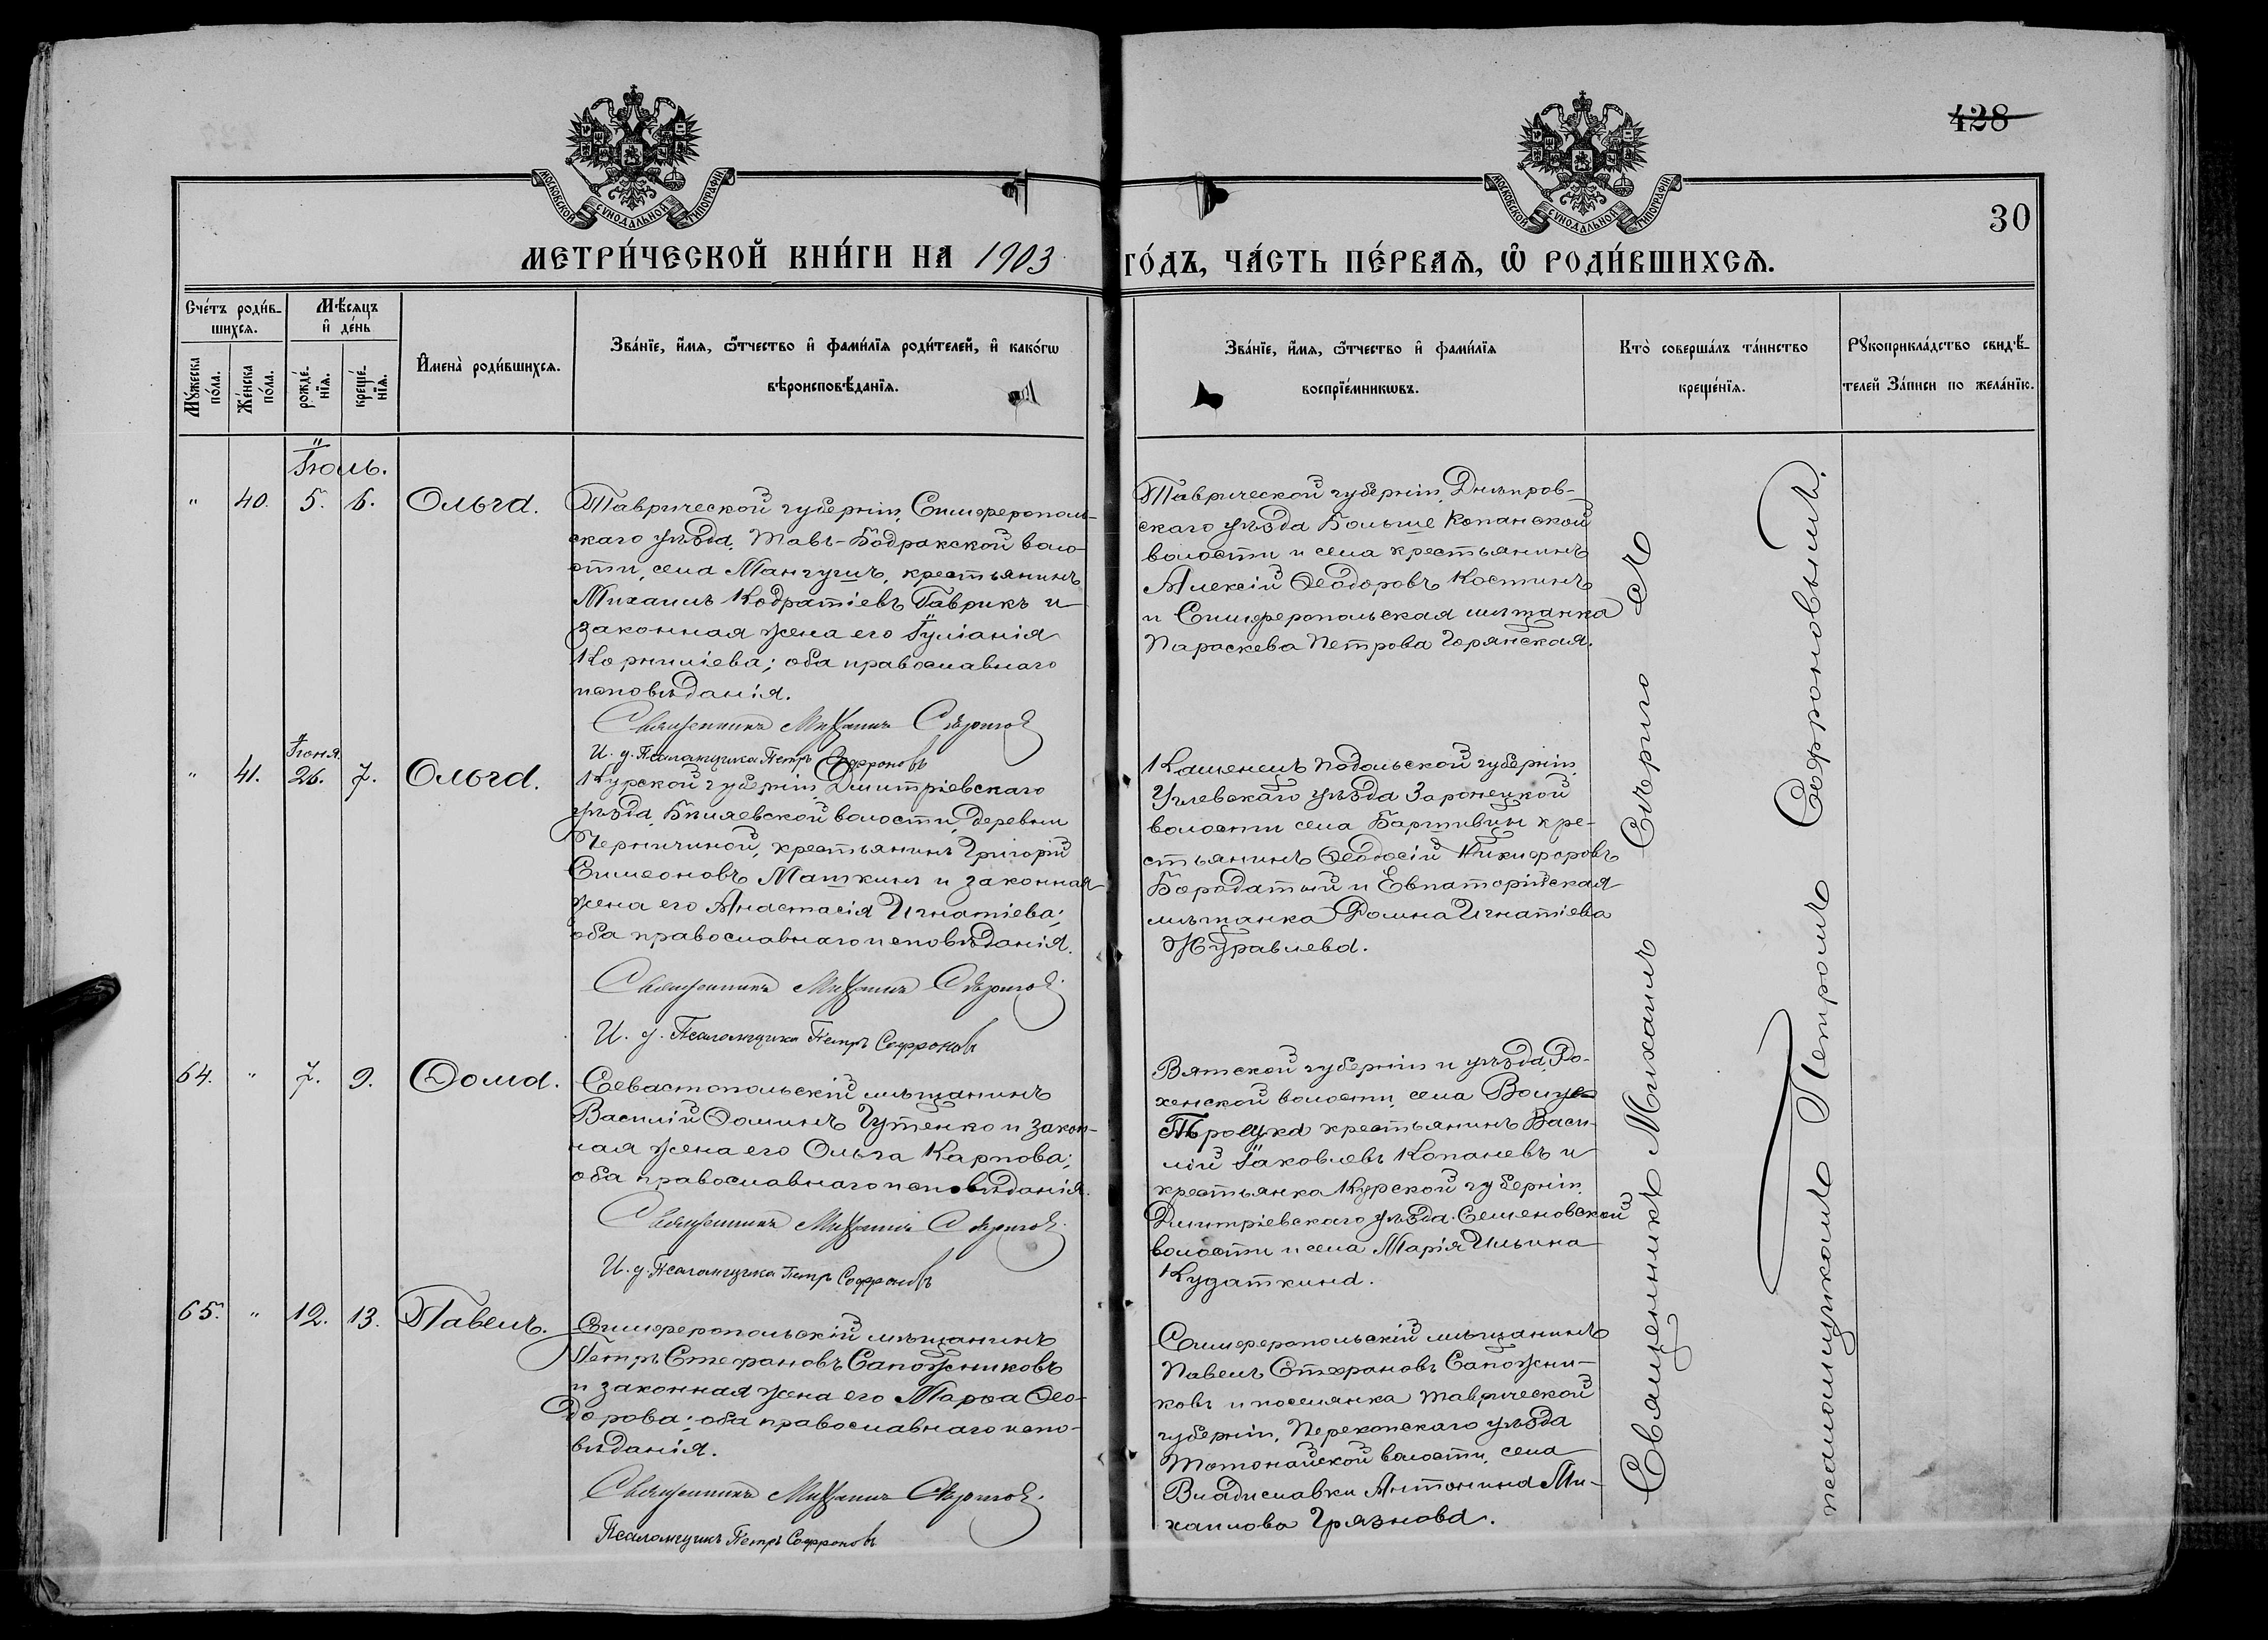 428
30
МОСКОВСКОЙ СѴНОДАЛЬНОЙ ТИПОГРАФІИ
МОСКОВСКОЙ СѴНОДАЛЬНОЙ ТИПОГРАФІИ
МЕТРИ́ЧЕСКОЙ КНИ́ГИ НА 1903 ГО́ДЪ, ЧА́СТЬ ПЕ́РВАѦ, Ѽ РОДИ́ВШИХСѦ.
Сче́тъ роди́в-
шихсѧ.
Мꙋ́жеска по́ла.
Же́нска по́ла.
Мѣ́сѧцъ
и҆ де́нь
рожде́-
нїѧ.
креще́-
нїѧ.
И҆мена̀ роди́вшихсѧ.
Зва́нїе, и҆́мѧ, ѻ҆́тчество и҆ фами́лїѧ роди́телей, и҆ како́гѡ
вѣроисповѣ́данїѧ.
Зва́нїе, и҆́мѧ, ѻ҆́тчество и҆ фами́лїѧ
воспрїе́мникѡвъ.
Кто̀ соверша́лъ та́инство
креще́нїѧ.
Рꙋкоприкла́дство свидѣ́-
телей За́писи по жела́нїю.
Іюль.
" 40. 5. 6. Ольга.
Таврической губерніи, Симферополь-
скаго уѣзда, Тавъ-Бодракской воло-
сти, села Мангушъ, крестьянинъ
Михаилъ Кодратіевъ Гаврикъ и
законная жена его Іуліанія
Корниліева; оба православнаго
исповѣданія.
Священникъ Михаилъ
И. д. Псаломщика Петръ Софроновъ
Таврической губерніи, Днѣпров-
скаго уѣзда Больше Копанской
волости и села крестьянинъ
Алексій Ѳеодоровъ Костинъ
и Симферопольская мѣщанка
Параскева Петрова Горянская.
Іюня
" 41. 26. 7. Ольга.
Курской губерніи, Дмитріевскаго
уѣзда, Бѣляевской волости, деревни
Черничиной, крестьянинъ Григорій
Симеоновъ Машкинъ и законная
жена его Анастасія Игнатіева;
оба православнаго исповѣданія.
Священникъ Михаилъ
И. д. Псаломщика Петръ Софроновъ
Каменецъ Подольской губерніи
уѣзда
волости села кре-
стьянинъ Ѳеодосій Никифоровъ
Бородатый и Евпаторійская
мѣщанка Домна Игнатіева
Журавлева.
64. " 7. 9. Ѳома.
Севастопольскій мѣщанинъ
Василій Ѳоминъ Гутенко и закон-
ная жена его Ольга Карпова;
оба православнаго исповѣданія.
Священникъ Михаилъ
И. д. Псаломщика Петръ Софроновъ
Вятской губерніи и уѣзда,
волости, села
крестьянинъ Васи-
лій Іаковлевъ Копаневъ и
крестьянка Курской губерніи,
Дмитріевскаго уѣзда Семеновской
волости и села Марія Ильина
Кудаткина.
65. " 12. 13. Павелъ.
Симферопольскій мѣщанинъ
Петръ Стефановъ Сапожниковъ
и законная жена его Марѳа Ѳео-
дорова; оба православнаго испо-
вѣданія.
Священникъ Михаилъ
Псаломщикъ Петръ Софроновъ
Симферопольскій мѣщанинъ
Павелъ Стефановъ Сапожни-
ковъ и поселянка Таврической
губерніи, Перекопскаго уѣзда
Тотонайской волости, села
Владиславки Антонина Ми-
хаилова Грязнова.
Священникъ Михаилъ съ
псаломщикомъ Петромъ Софроновымъ.